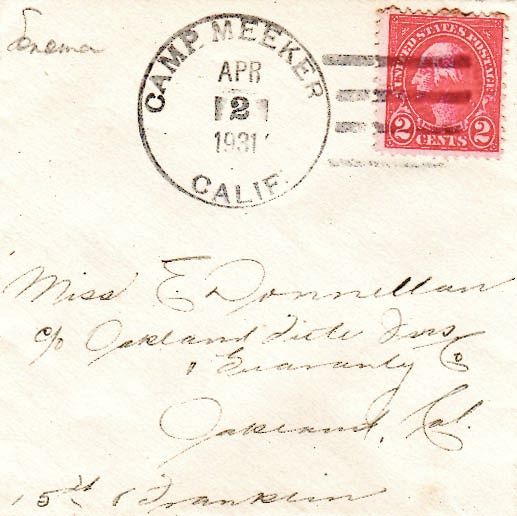 Sonoma
CAMP MEEKER
APR
2
1931
CALIF.
UNITED STATES POSTAGE
2 CENTS 2
Miss E. Donnellan
c/o Oakland Title Ins
& Guaranty Co
Oakland, Cal.
15th & Franklin